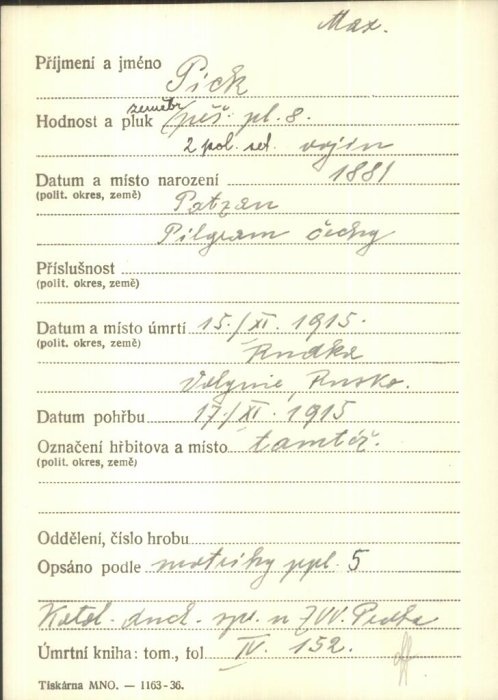 Max.
Příjmení a jméno Pick
Hodnost a pluk zeměbr. pěš. pl. 8.
2 pol. set. vojín
Datum a místo narození 1881
(polit. okres, země) Patzau
Pilgram Čechy
Příslušnost
(polit. okres, země)
Datum a místo úmrtí 15./XI. 1915.
(polit. okres, země) Rudka
Volynie, Rusko.
Datum pohřbu 17./XI. 1915
Označení hřbitova a místo tamtéž.
(polit. okres, země)
Oddělení, číslo hrobu
Opsáno podle matriky ppl. 5
Katol. duch. spr. u ZVV. Praha
Úmrtní kniha: tom., fol. IV. 152.
Tiskárna MNO. — 1163-36.